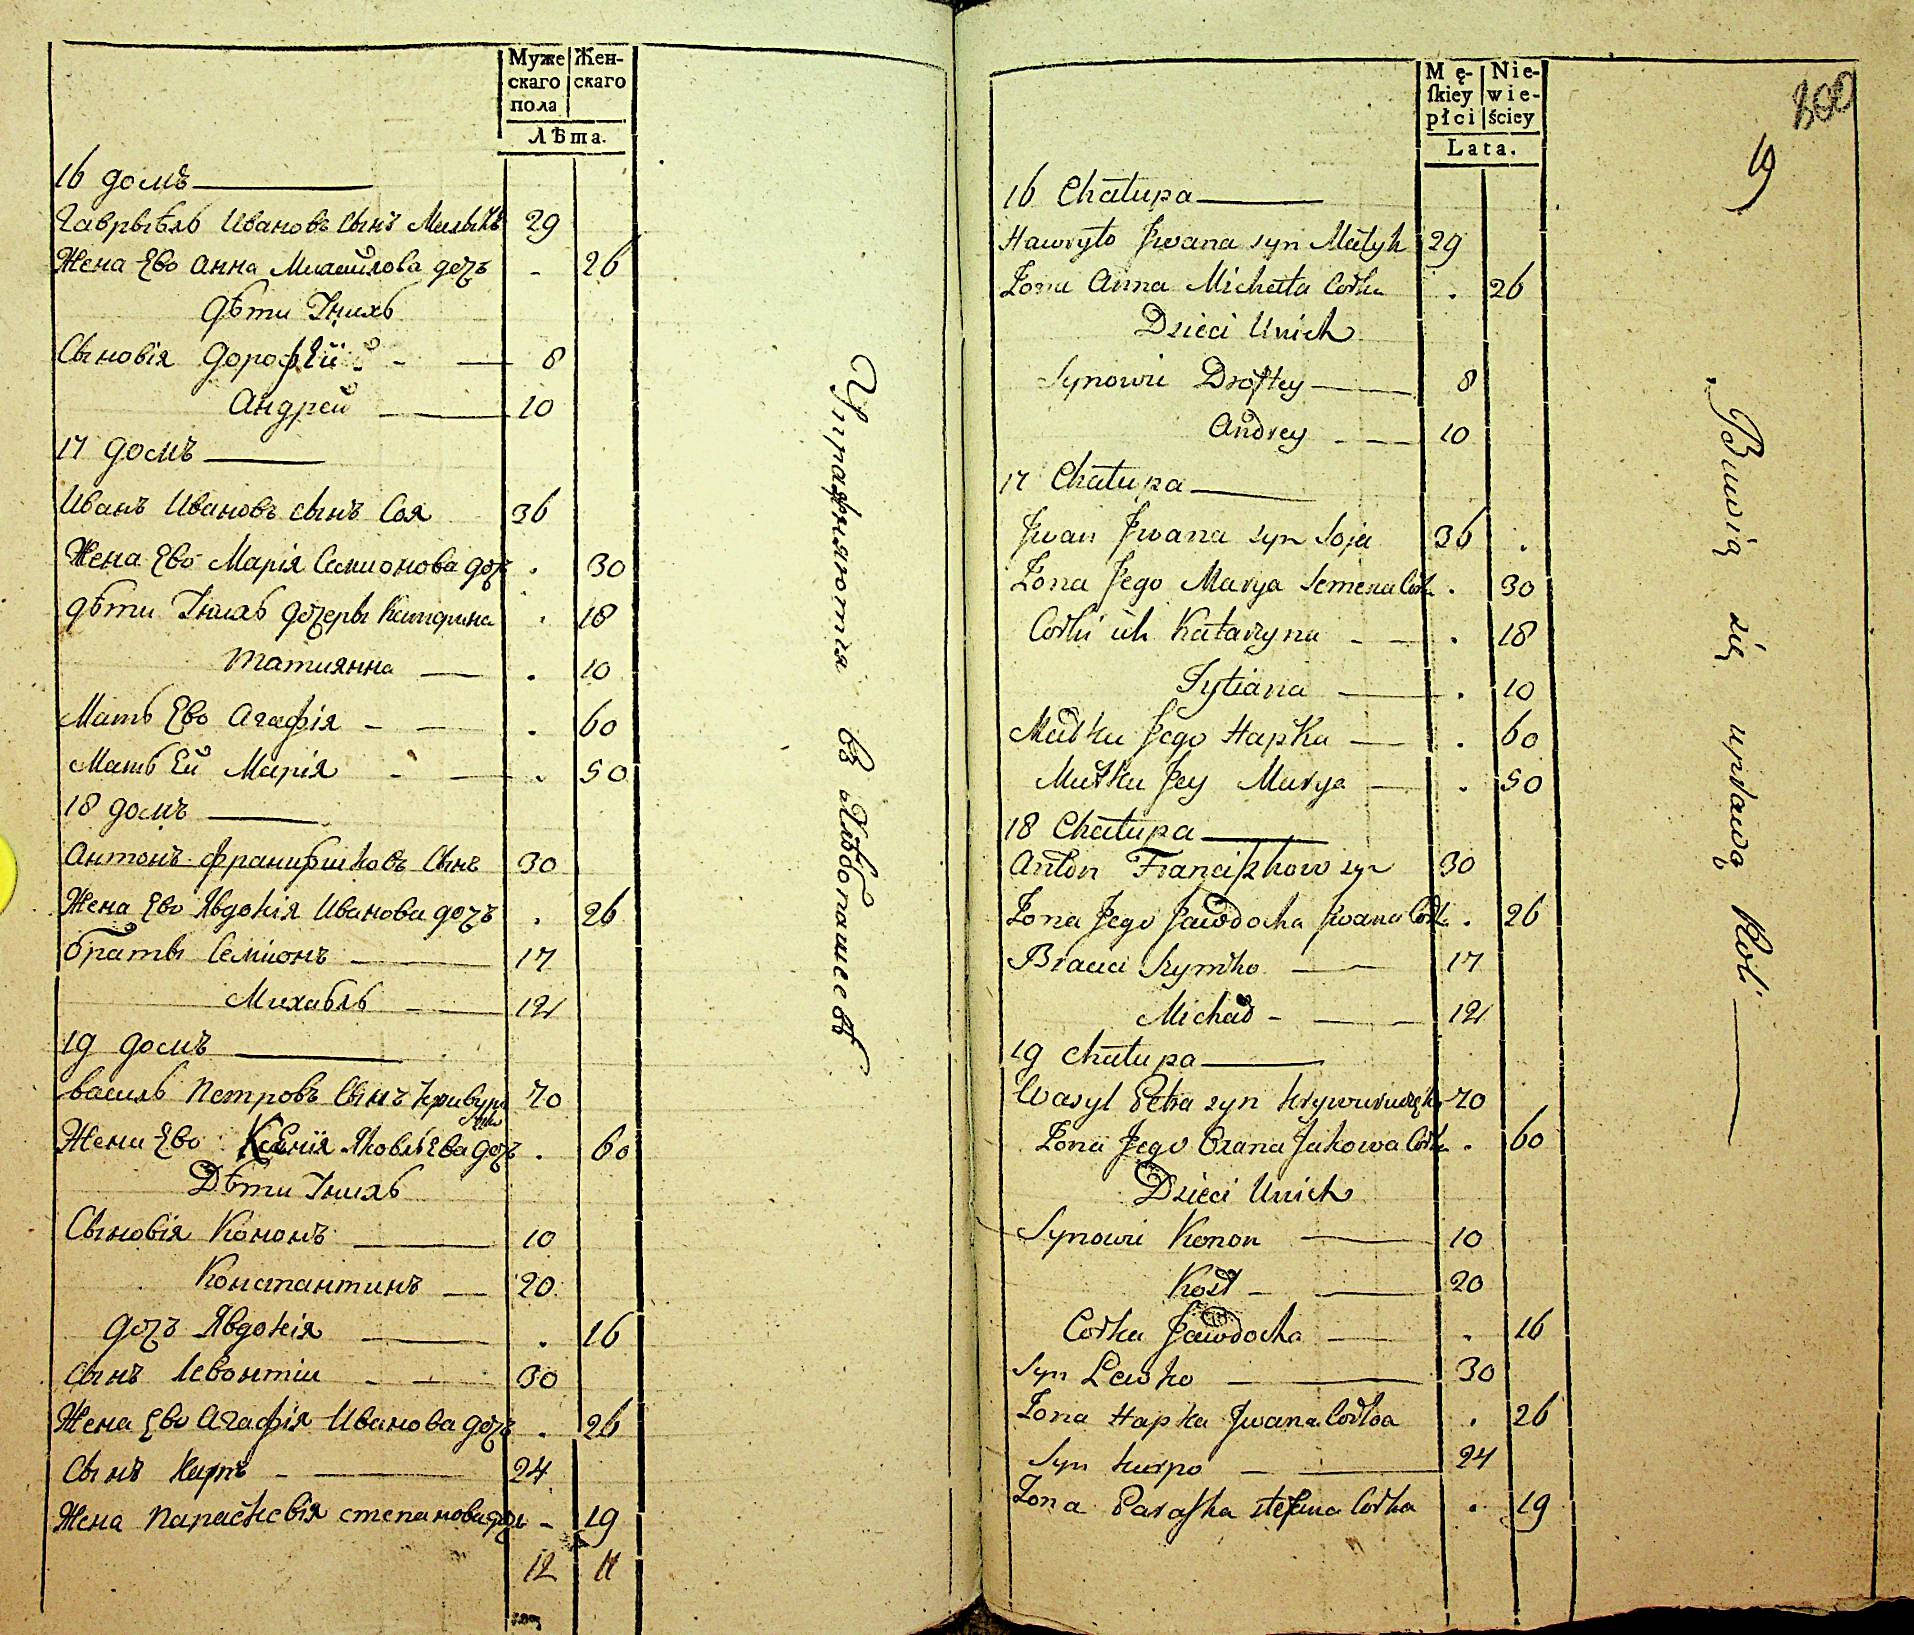 Муже Жен-
скаго скаго
пола
Лѣта.
16 домъ
Гаврыѣлъ Ивановъ сынъ Малыкъ 29
Жена Ево Анна Михайлова дочъ - 26
Дѣти Унихъ
Сыновія Дорофѣй - 8
Андрей 10
17 домъ
Иванъ Ивановъ сынъ Соя 36
Жена Ево Марія Семионова доч . 30
Дѣти Унихъ дочеры Катрина . 18
Татиянна . 10
Мать Ево Агафія - . 60
Мать Ей Марія - . 50
18 домъ
Антонъ Францѣшковъ Сынъ 30
Жена Ево Явдокія Иванова дочъ . 26
браты Семионъ 17
Михаѣлъ 12
19 домъ
Василь Петровъ Сынъ 70
Жена Ево Ксенія Яковлѣва дочъ . 60
Дѣти Унихъ
Сыновія Кононъ 10
Константинъ 20
дочъ Явдокія . 16
сынъ Левонтіи - 30
Жена Ево Агафія Иванова дочъ . 26
Сынъ Карпъ - 24
Жена Параскевія степанова дочь - 19
12 11
Упражняются въ Хлѣбопашесвѣ
Mę- Nie-
ſkiey wie-
płci ściey
Lata.
800
19
16 Chałupa
Hawryło Jwana syn Małyk 29
Żona Anna Michała Corka . 26
Dzieci Unich
Synowie Droftey 8
Andrey 10
17 Chałupa
Jwan Jwana syn Soja 36 .
Żona Jego Marya Semena Cork . 30
Corki ich Katarzyna - . 18
Tytiana . 10
Matka Jego Hapka . 60
Matka Jey Marya . 50
18 Chałupa
Anton Franciszkow syn 30
Żona Jego Jawdocha Jwana Cork . 26
Bracia Szymko 17
Michał - 12
19 Chałupa
Wasyl Petra syn 70
Żona Jego Oxana Jakowa Cork . 60
Dzieci Unich
Synowie Konon 10
Kost - 20
Corka Jawdocha . 16
Syn Lewko 30
Żona Hapka Jwana Corka . 26
Syn Karpo 24
Żona Paraſka Stefana Corka . 19
Bawią się uprawą Roli